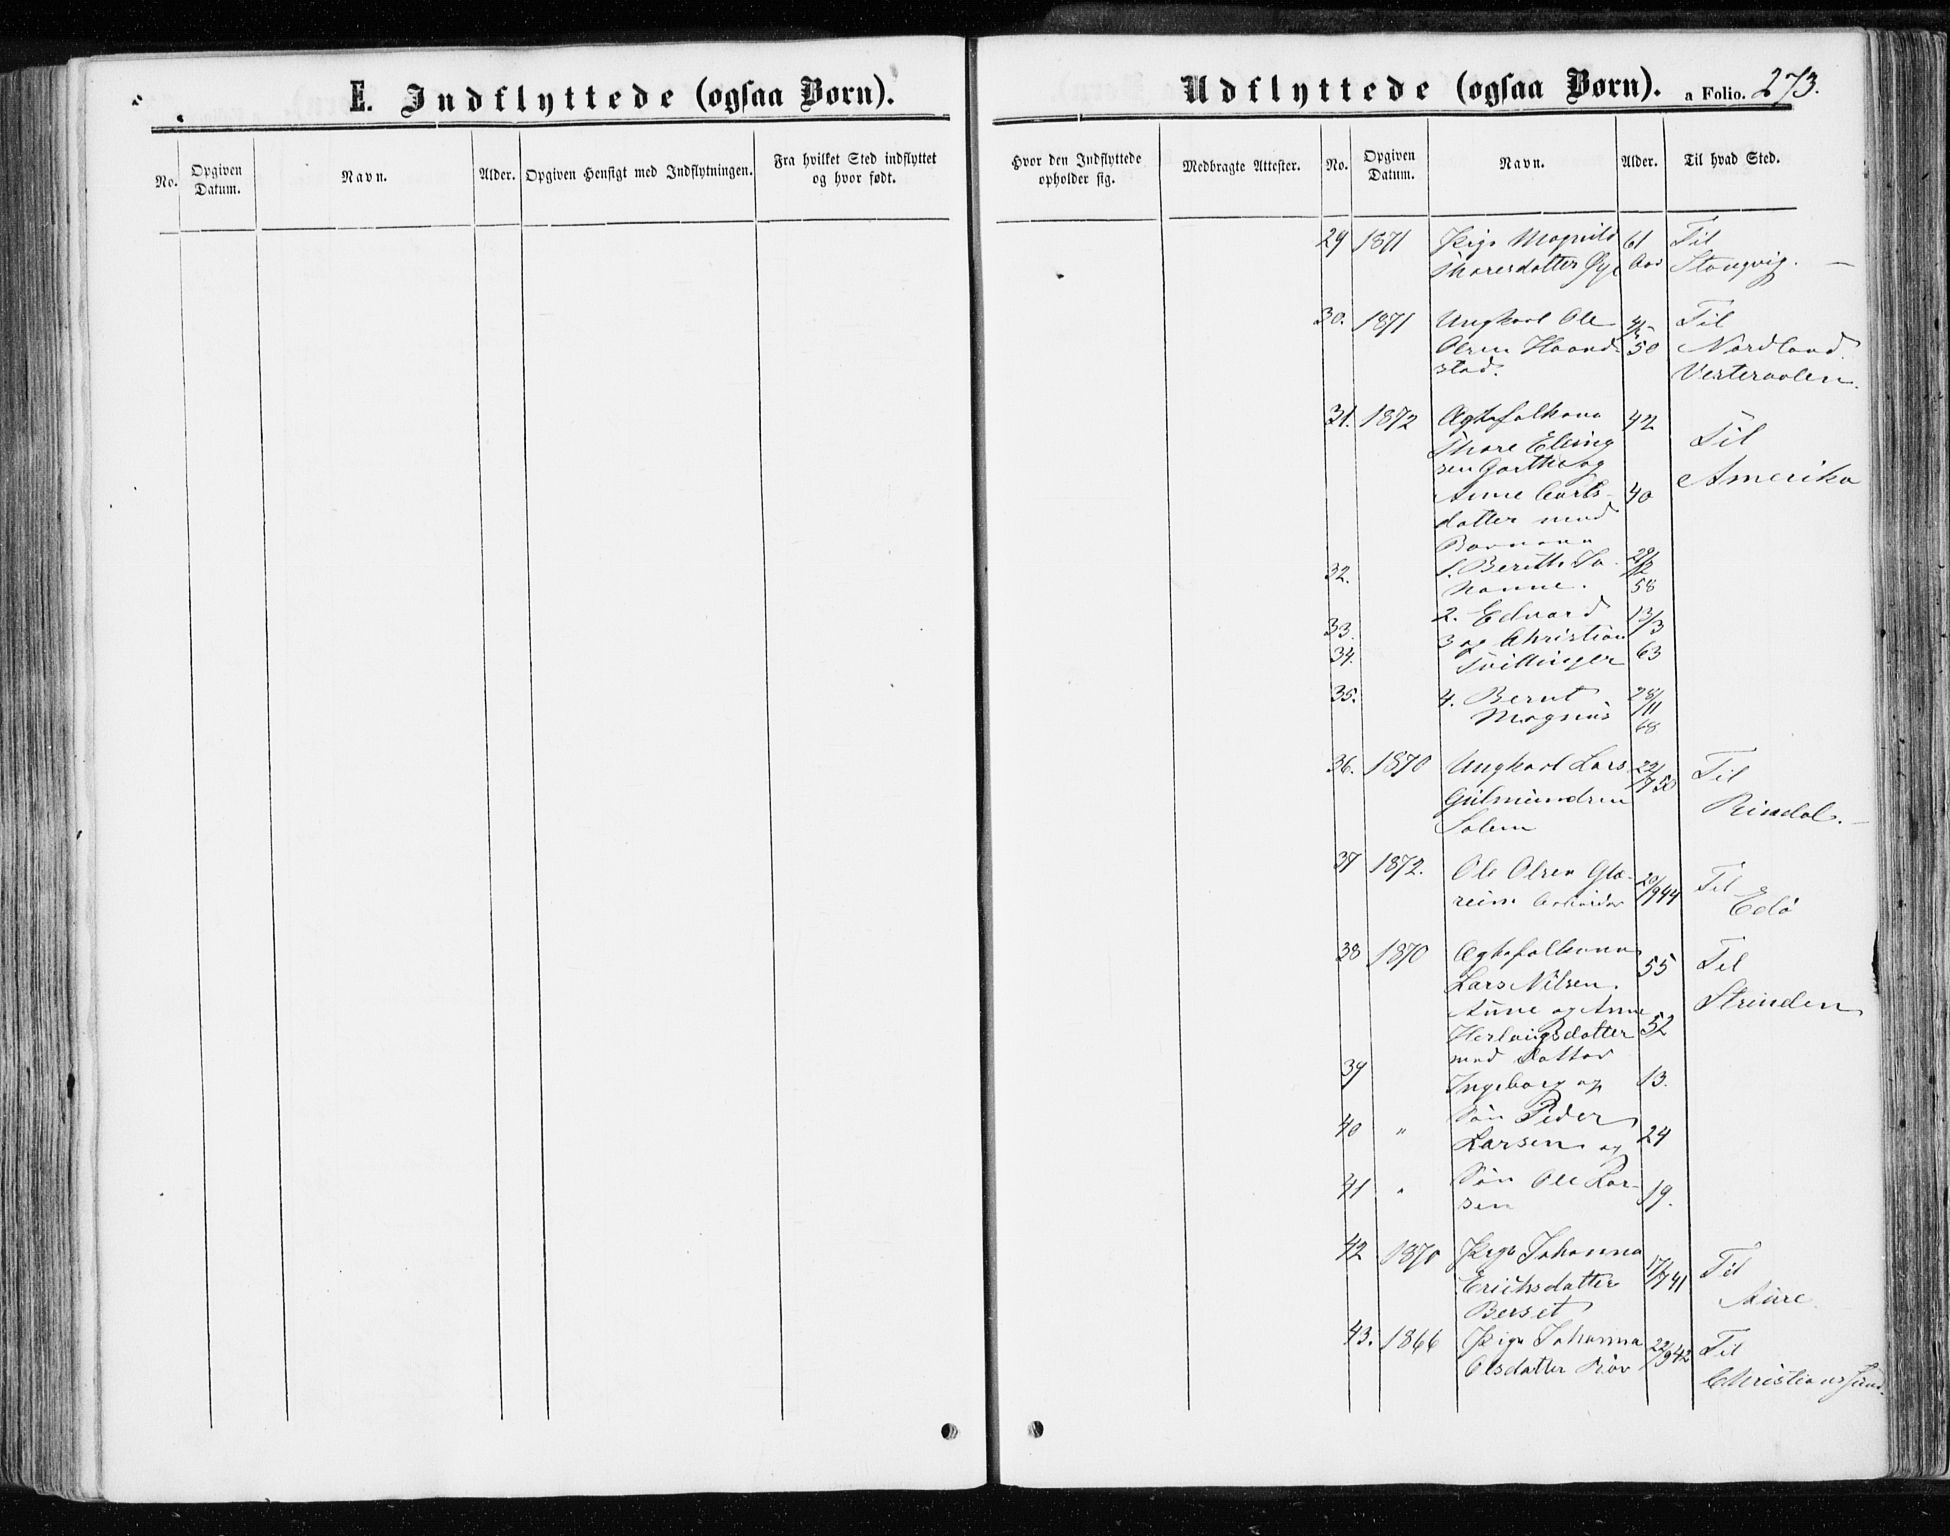 E. Indflyttede (ogsaa Børn).
No.
Opgiven Datum.
Navn.
Alder.
Opgiven Hensigt med Indflytningen.
Fra hvilket Sted indflyttet og hvor født.
Udflyttede (ogsaa Børn).
a Folio. 273.
Hvor den Indflyttede opholder sig.
Medbragte Attester.
No.
Opgiven Datum.
Navn.
Alder.
Til hvad Sted.
29 1871 Pige Magnild 61 Til
Thoresdatter Øye Aar Stangvig.
30. 1871 Ungkarl Ole Til
Olsen Haand- 50 Nordland.
stad. Vesteraalen.
31. 1872 Ægtefolkene 42 Til
Thore Elling
sen Garthe og Amerika
Anne Carls- 40
datter med
Børnene
32. 1. Berith Jo-
hanne. 58
33. 2. Edvard 13/3
34. 3 og Christian 63
Tvillinger
35. 4. Bernt 28/11
Magnus 68
36. 1870 Ungkarl Lars 22/7 50 Til
Gulmundsen Rindal.
Solem
37 1872. Ole Olsen Glæ- 20/9 44 Til
reim Arbeider Edø
38 1870 Ægtefolkene 55 Til
Lars Nilsen. Strinden
Aune og Anne
Herlaugsdatter 52
39 med Datter
Ingeborg og 13.
40 " Søn Peder
Larsen og 24
41 " Søn Ole Lar-
sen 19.
42 1870 Pige Johanna 17/7 41 Til
Erichsdatter Aure
Berset
43. 1866 Pige Johanna 22/9 42 Til
Olsdatter Røv Christianssund.